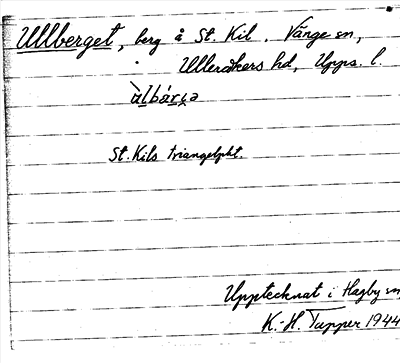 Ullberget, berg å St. Kil. Vänge sn,
Ulleråkers hd, Upps. l.
St. Kils triangelpkt.
Upptecknat i Hagby sn
K.-H. Tapper 1944